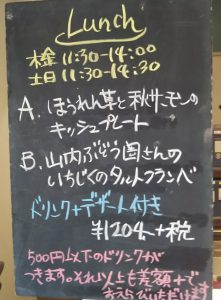 Lunch
木金 11:30-14:00
土日 11:30-14:30
A. ほうれん草と秋サーモンの
キッシュプレート
B. 山内ぶどう園さんの
いちじくのタルトフランベ
ドリンク+デザート付き
¥1204-+税
500円以下のドリンクが
つきます。それ以上も差額+で
おえらびいただけます